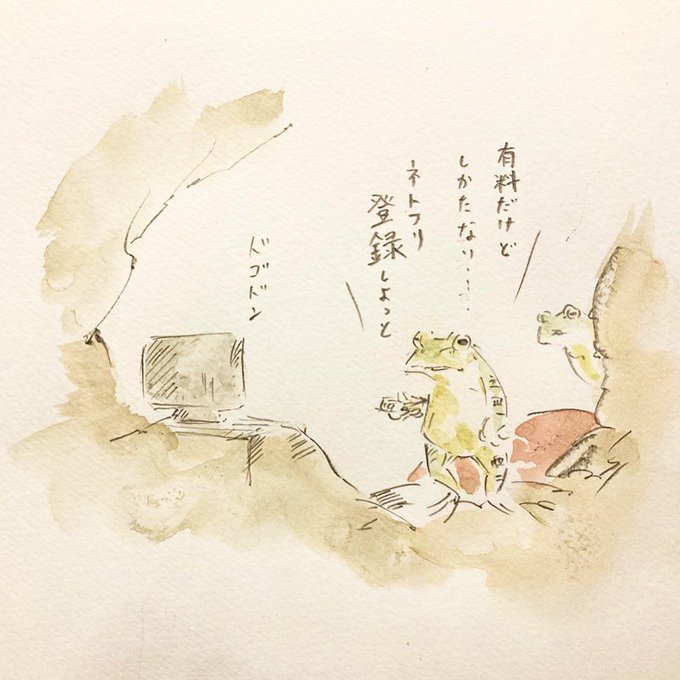 有料だけど
しかたない・・・・
ネトフリ
登録しよっと
ドゴドン